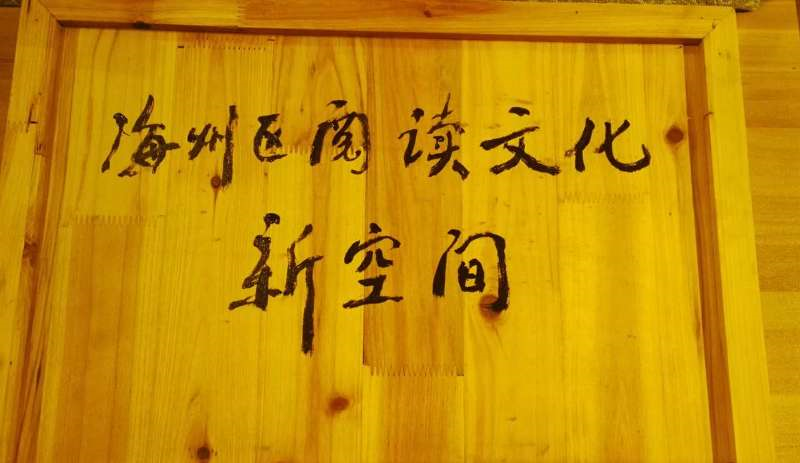 海州区阅读文化
新空间